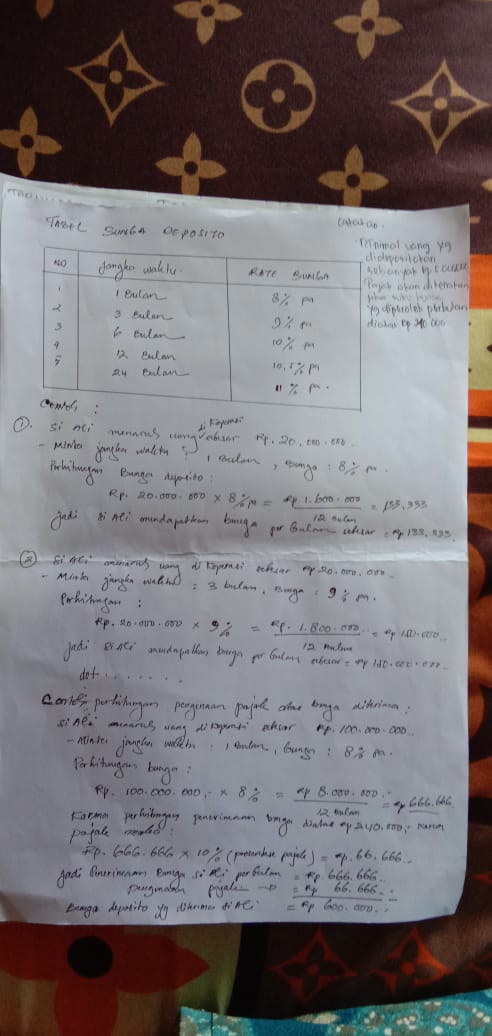 TABEL BUNGA DEPOSITO
Catatan.
- Minimal uang yg
didepositokan
sebanyak Rp
Pajak akan dikenakan
jika
yg diperoleh perbulan
diatas Rp 240.000
NO Jangka waktu. RATE BUNGA
1 1 Bulan 8% pa
2 3 Bulan 9% pa
3 6 Bulan 10% pa
4 12 Bulan 10,5% pa
5 24 Bulan 11% pa.
Contoh :
1. Si Ali menaruh uang di Koperasi sebesar Rp. 20.000.000..
- Minta jangka waktu : 1 Bulan, Bunga : 8% pa.
Perhitungan Bunga deposito :
Rp. 20.000.000 x 8% pa = Rp 1.600.000 / 12 Bulan = 133,333
Jadi si Ali mendapatkan bunga per Bulan sebesar = Rp 133.333.
2. Si Ali menaruh uang di Koperasi sebesar Rp 20.000.000..
- Minta jangka waktu : 3 bulan, Bunga : 9% pa.
Perhitungan :
Rp. 20.000.000 x 9% = Rp. 1.800.000 / 12 Bulan = Rp 150.000..
Jadi si Ali mendapatkan bunga per bulan sebesar = Rp 150.000
dst. . . . . . .
Contoh perhitungan pengenaan pajak atas bunga diterima :
Si Ali menaruh uang di Koperasi sebesar Rp. 100.000.000..
- Minta jangka waktu : 1 Bulan, bunga : 8% pa.
Perhitungan bunga :
Rp. 100.000.000,- x 8% = Rp 8.000.000,- / 12 Bulan = Rp 666.666.
Karena perhitungan penerimaan bunga diatas Rp 240.000,-
pajak :
Rp. 666.666 x 10% (prosentase pajak) = Rp. 66.666..
Jadi Penerimaan Bunga si Ali per bulan = Rp 666.666..
pengenaan pajak = Rp 66.666.. -
Bunga deposito yg diterima si Ali = Rp 600.000..